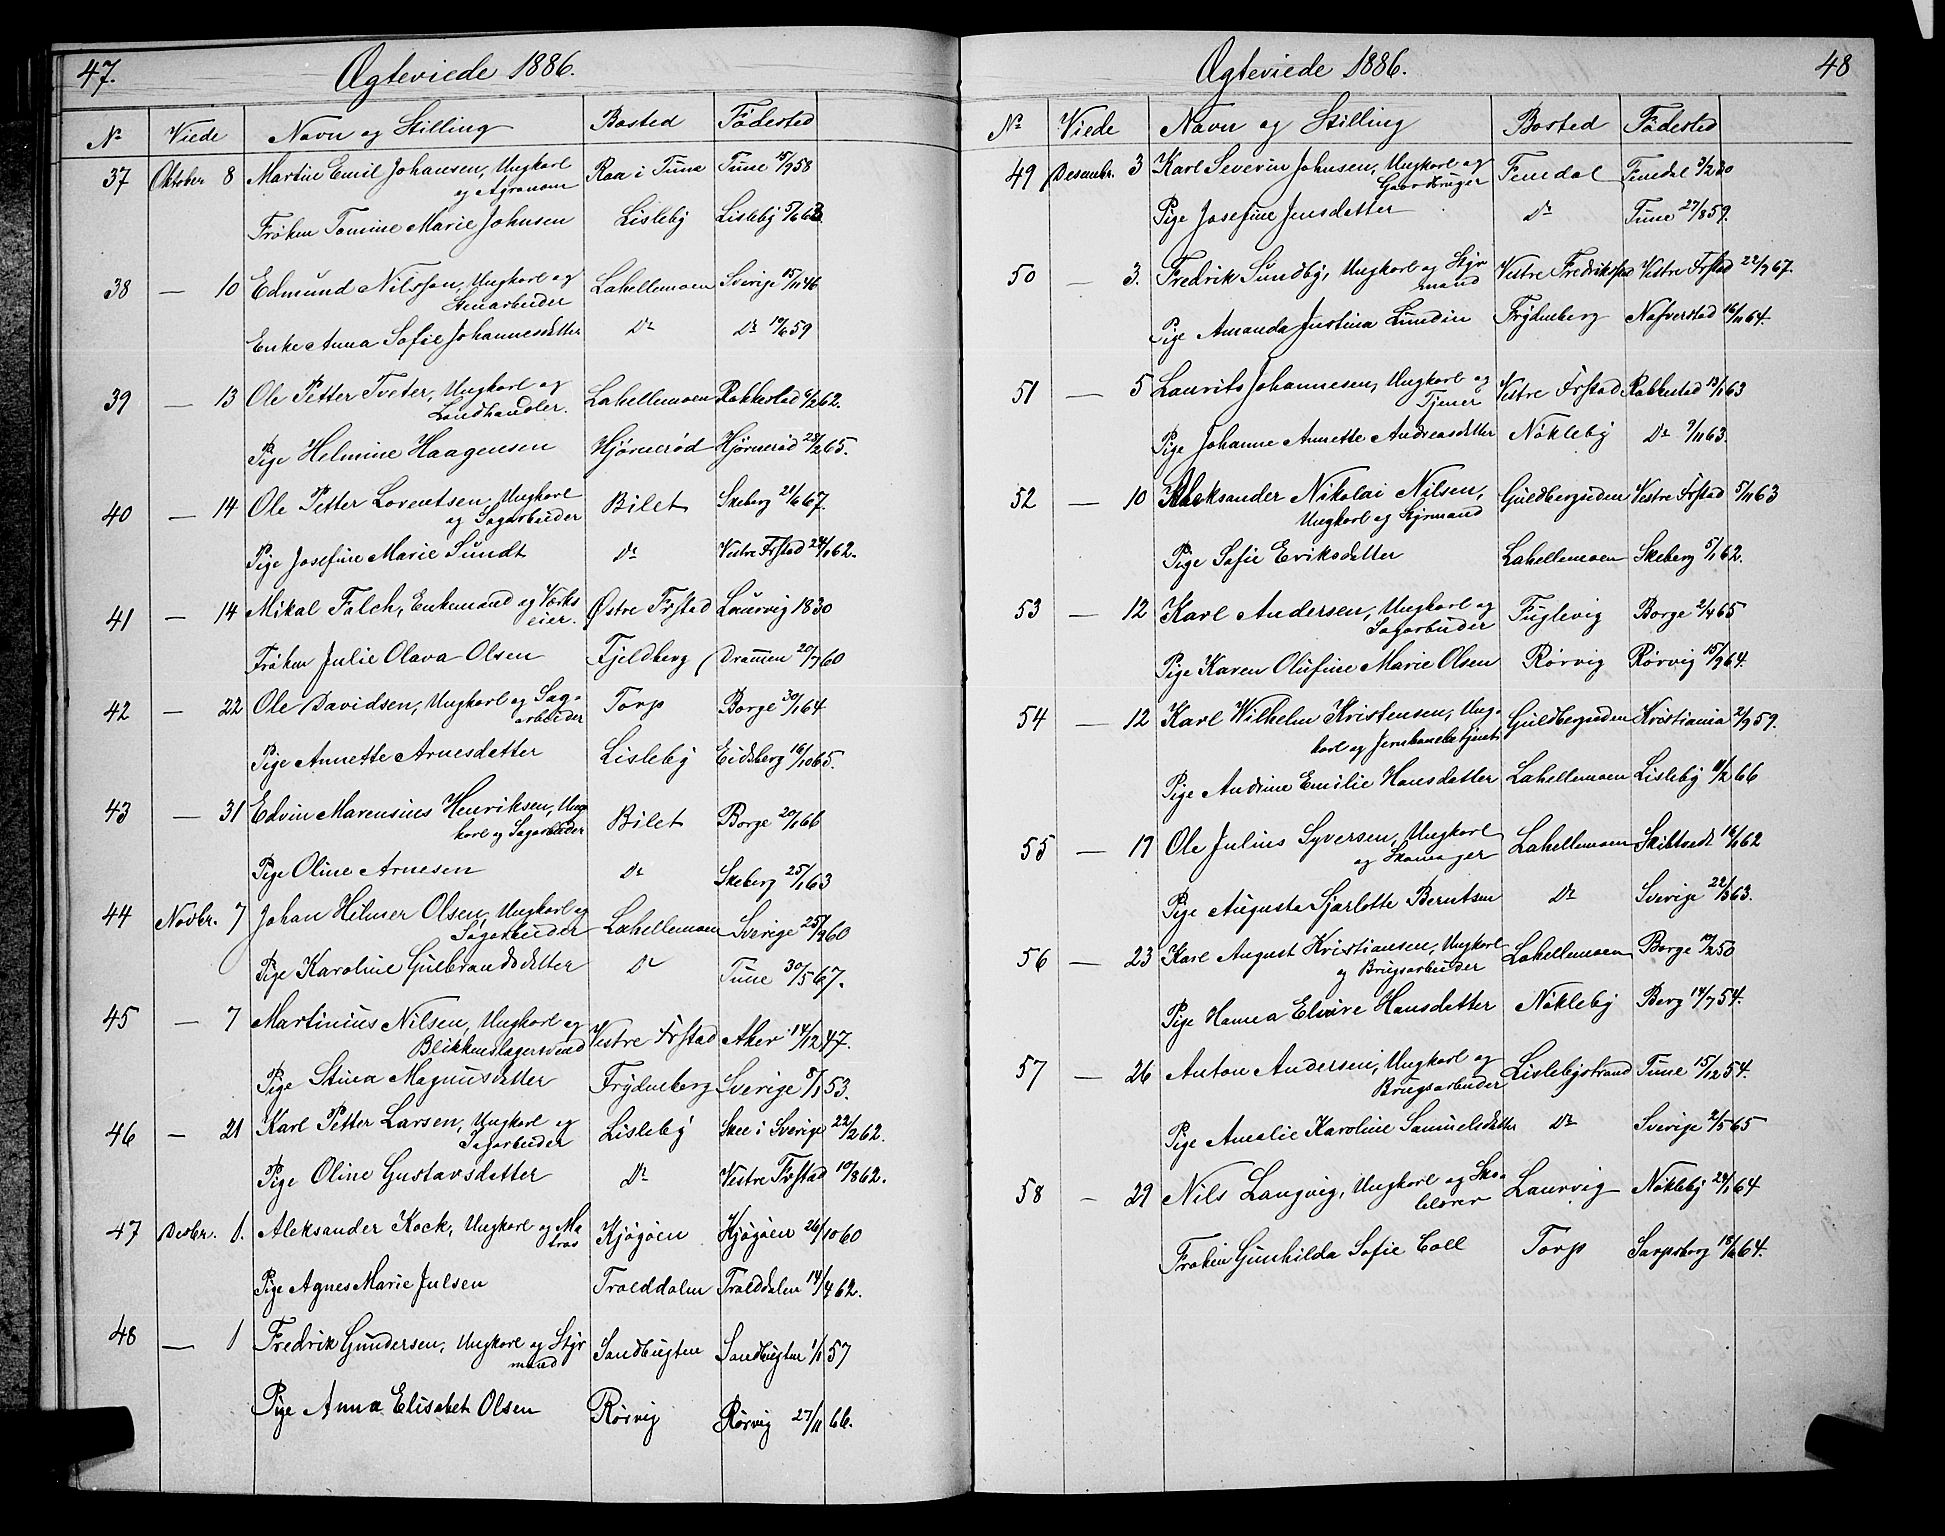 47.
Ægteviede 1886.
No Viede Navn og Stilling Bosted Fødested
37 Oktober 8 Martin Emil Johansen, Ungkarl Raa i Tune Tune 15/9 58
og Agronom
Frøken Tomine Marie Johnsen Lisleby Lisleby 5/6 68.
38 — 10 Edmund Nilsson, Ungkarl og Lahellemoen Sverige 15/11 46
Stenarbeider
Enke Anna Sofie Johannesdetter Do Do 19/6 59
39 — 13 Ole Petter Tveter, Ungkarl og Lahellemoen Rakkestad 9/2 62.
Landhandler.
Pige Helmine Haagensen Hjørnerød Hjørnerød 28/2 65.
40 — 14 Ole Petter Lorentsen, Ungkarl Bilet Skeberg 21/6 67.
og Sagarbeider
Pige Josefine Marie Sundt Do Vestre Frstad 24/1 62.
41 — 14 Mikal Falch, Enkemand og Værks Østre Frstad Laurvig 1830
eier.
Frøken Julie Olava Olsen Fjeldberg Drammen 20/7 60
42 — 22 Ole Davidsen, Ungkarl og Sag- Torp Borge 30/1 64
arbeider
Pige Annette Arnesdetter Lisleby Eidsberg 16/10 65.
43 — 31 Edvin Marensius Henriksen, Ung Bilet Borge 20/1 66
karl og Sagarbeider
Pige Oline Arnesen Do Skeberg 25/1 63
44 Novbr. 7 Johan Hilmer Olsen, Ungkarl og Lahellemoen Sverige 25/9 60
Sagarbeider
Pige Karoline Gulbrandsdetter Do Tune 30/5 67.
45 — 7 Martinius Nilsen, Ungkarl og Vestre Frstad Aker 14/12 47.
Blikkenslagersvend
Pige Stina Magnusdetter Frydenberg Sverige 8/1 53.
46 — 21 Karl Petter Larsen, Ungkarl og Lisleby Skee i Sverige 22/2 62.
Sagarbeider
Pige Oline Gustavsdetter Do Vestre Frstad 19/8 62.
47 Desbr. 1. Aleksander Kock, Ungkarl og Ma Kjøgøen Kjøgøen 26/10 60
tros
Pige Agnes Marie Julsen Tralddalen Tralddalen 14/4 62.
48 — 1 Fredrik Gundersen, Ungkarl og Styr Sandbugten Sandbugten 1/1 57
mand
Pige Anna Elisabet Olsen Rørvig Rørvig 27/11 66.
48
Ægteviede 1886.
No Viede Navn og Stilling Bosted Fødested
49 Desembr. 3 Karl Severin Johnsen, Ungkarl og Femdal Femdal 3/2 30
Gaardbruger
Pige Josefine Jensdetter Do Tune 27/8 59.
50 — 3. Fredrik Sundby, Ungkarl og Styr Vestre Fredrikstad Vestre Frstad 22/7 67.
mand
Pige Amanda Justina Lundin Frydenberg Nafverstad 16/11 64.
51 — 5 Laurits Johannesen, Ungkarl og Vestre Frstad Rakkestad 13/1 63
Tjener
Pige Johanne Annette Andreasdetter Nøkleby Do 9/11 63.
52 — 10 Aleksander Nikolai Nilsen, Guldbergsiden Vestre Frstad 5/11 63
Ungkarl og Styrmand
Pige Sofie Eriksdetter Lahellemoen Skeberg 5/1 62.
53 — 12 Karl Andersen, Ungkarl og Fuglevig Borge 2/4 65
Sagarbeider
Pige Karen Olufine Marie Olsen Rørvig Rørvig 15/9 64.
54 — 12 Karl Wilhelm Kristensen, Ung- Guldbergsiden Kristiania 2/9 59.
karl og Jernbanebetjent
Pige Andrine Emilie Hansdetter Lahellemoen Lisleby 11/2 66
55 — 17 Ole Julius Syversen, Ungkarl Lahellemoen Skibtvedt 16/1 62
og Skomager
Pige Augusta Sjarlotte Berntsen Do Sverige 22/3 63.
56 — 23 Karl August Kristiansen, Ungkarl Lahellemoen Borge 19/2 50
og Brugsarbeider
Pige Hanna Elvire Hansdetter Nøkleby Berg 14/7 54.
57 — 26 Anton Andersen, Ungkarl og Lislebystrand Tune 15/12 54.
Brugsarbeider
Pige Amalie Karoline Samuelsdetter Do Sverige 2/5 65
58 — 29 Nils Langvig, Ungkarl og Sko- Laurvig Nøkleby 24/1 64
lelærer
Frøken Gunhilda Sofie Coll Torp Sarpsborg 18/6 64.